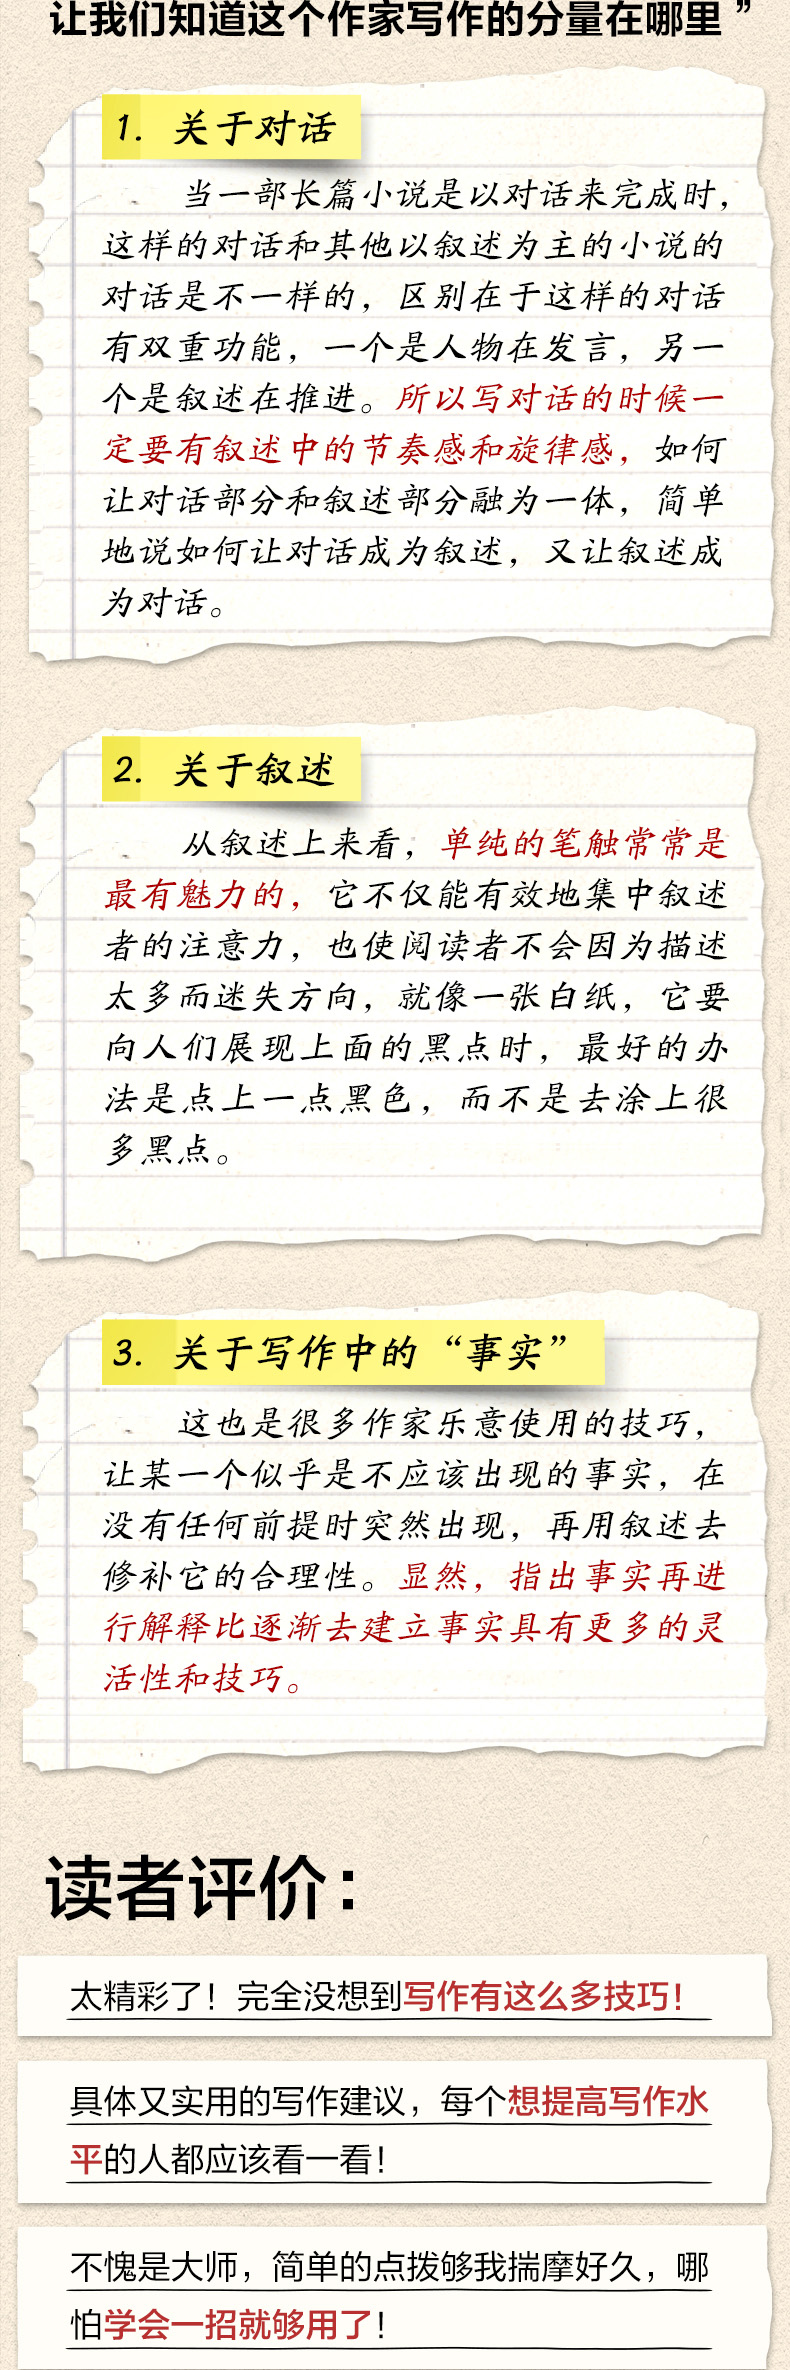 让我们知道这个作家写作的分量在哪里”
1. 关于对话
当一部长篇小说是以对话来完成时，
这样的对话和其他以叙述为主的小说的
对话是不一样的，区别在于这样的对话
有双重功能，一个是人物在发言，另一
个是叙述在推进。所以写对话的时候一
定要有叙述中的节奏感和旋律感，如何
让对话部分和叙述部分融为一体，简单
地说如何让对话成为叙述，又让叙述成
为对话。
2. 关于叙述
从叙述上来看，单纯的笔触常常是
最有魅力的，它不仅能有效地集中叙述
者的注意力，也使阅读者不会因为描述
太多而迷失方向，就像一张白纸，它要
向人们展现上面的黑点时，最好的办
法是点上一点黑色，而不是去涂上很
多黑点。
3. 关于写作中的“事实”
这也是很多作家乐意使用的技巧，
让某一个似乎是不应该出现的事实，在
没有任何前提时突然出现，再用叙述去
修补它的合理性。显然，指出事实再进
行解释比逐渐去建立事实具有更多的灵
活性和技巧。
读者评价：
太精彩了！完全没想到写作有这么多技巧！
具体又实用的写作建议，每个想提高写作水
平的人都应该看一看！
不愧是大师，简单的点拨够我揣摩好久，哪
怕学会一招就够用了！